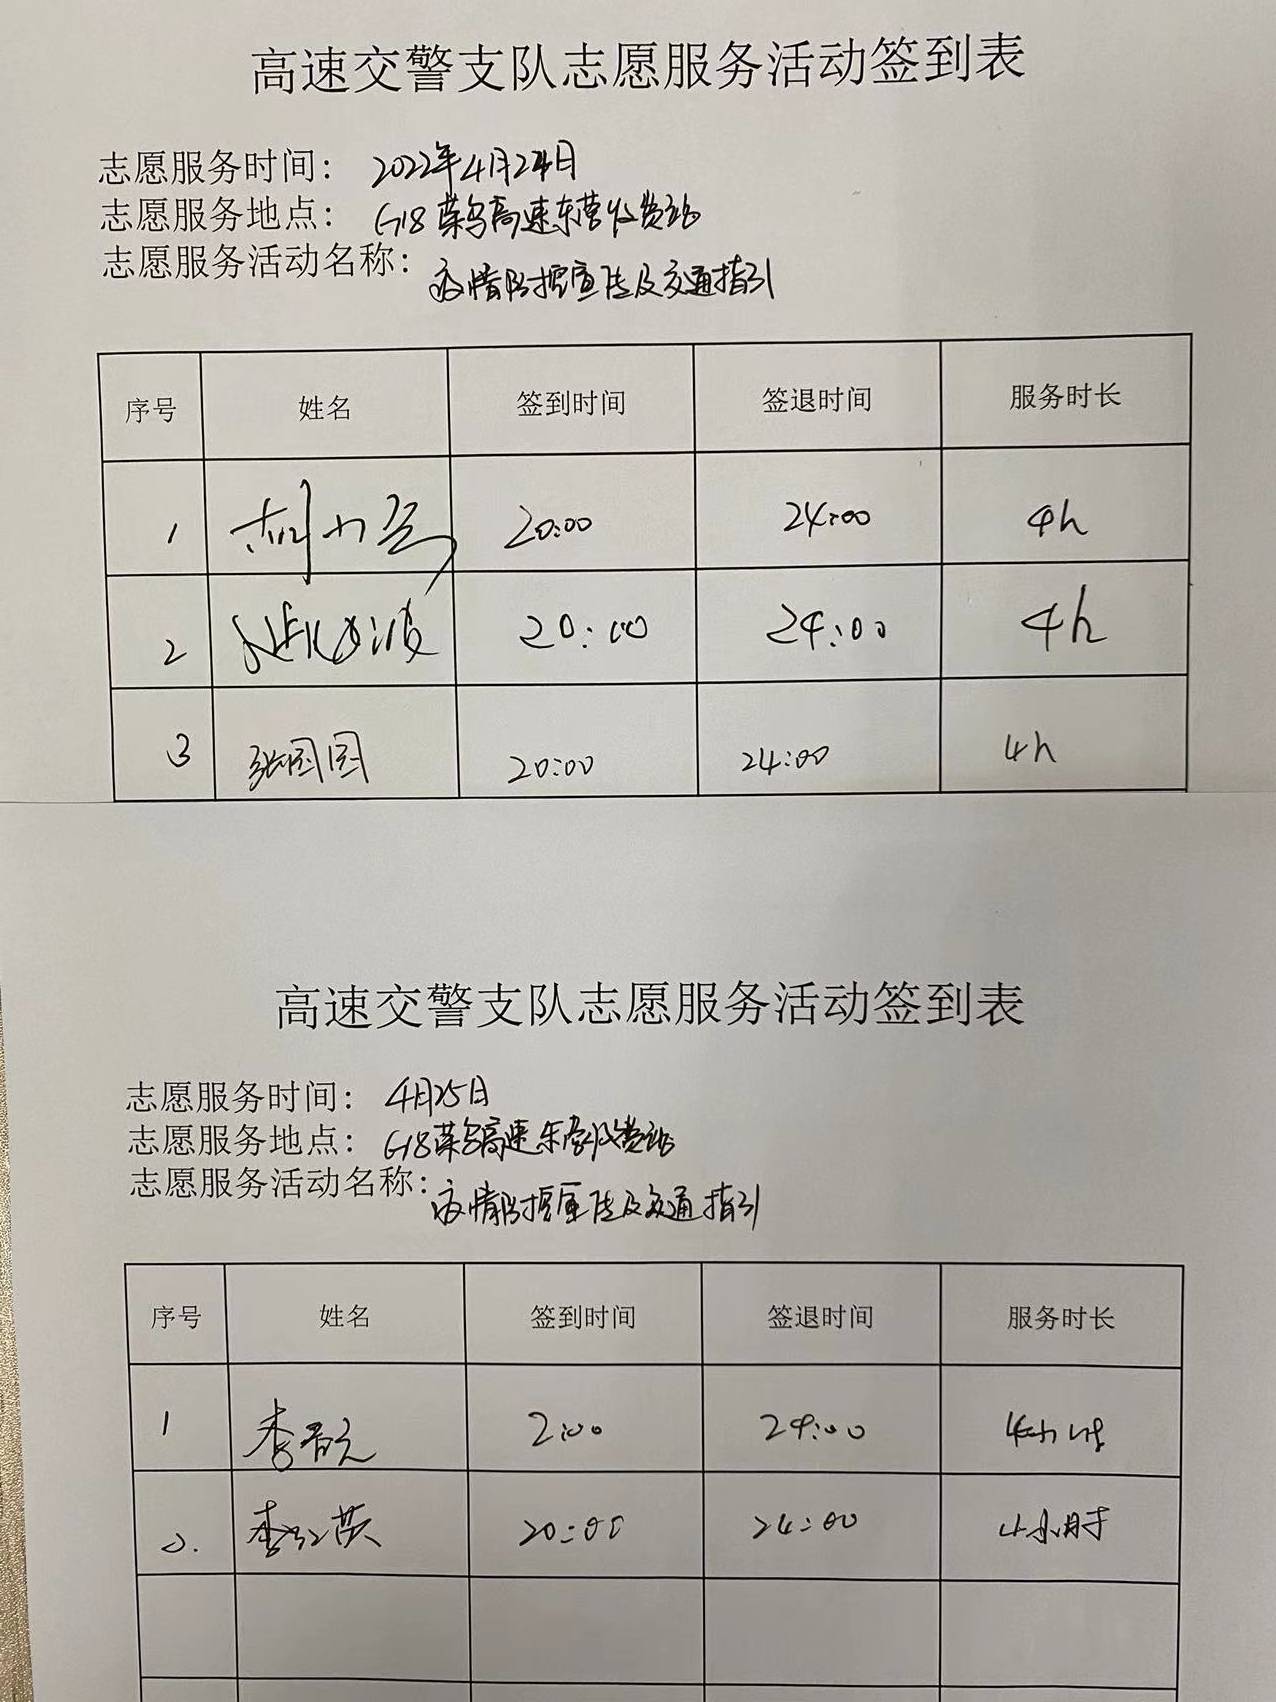 高速交警支队志愿服务活动签到表
志愿服务时间： 2022年4月24日
志愿服务地点： G18荣乌高速东营收费站
志愿服务活动名称： 疫情防控宣传及交通指引
序号 姓名 签到时间 签退时间 服务时长
1 20:00 24:00 4h
2 20:00 24:00 4h
3 张国国 20:00 24:00 4h
高速交警支队志愿服务活动签到表
志愿服务时间： 4月25日
志愿服务地点： G18荣乌高速东营收费站
志愿服务活动名称： 疫情防控宣传及交通指引
序号 姓名 签到时间 签退时间 服务时长
1 李 2:00 24:00 4小时
2. 李红英 20:00 24:00 4小时